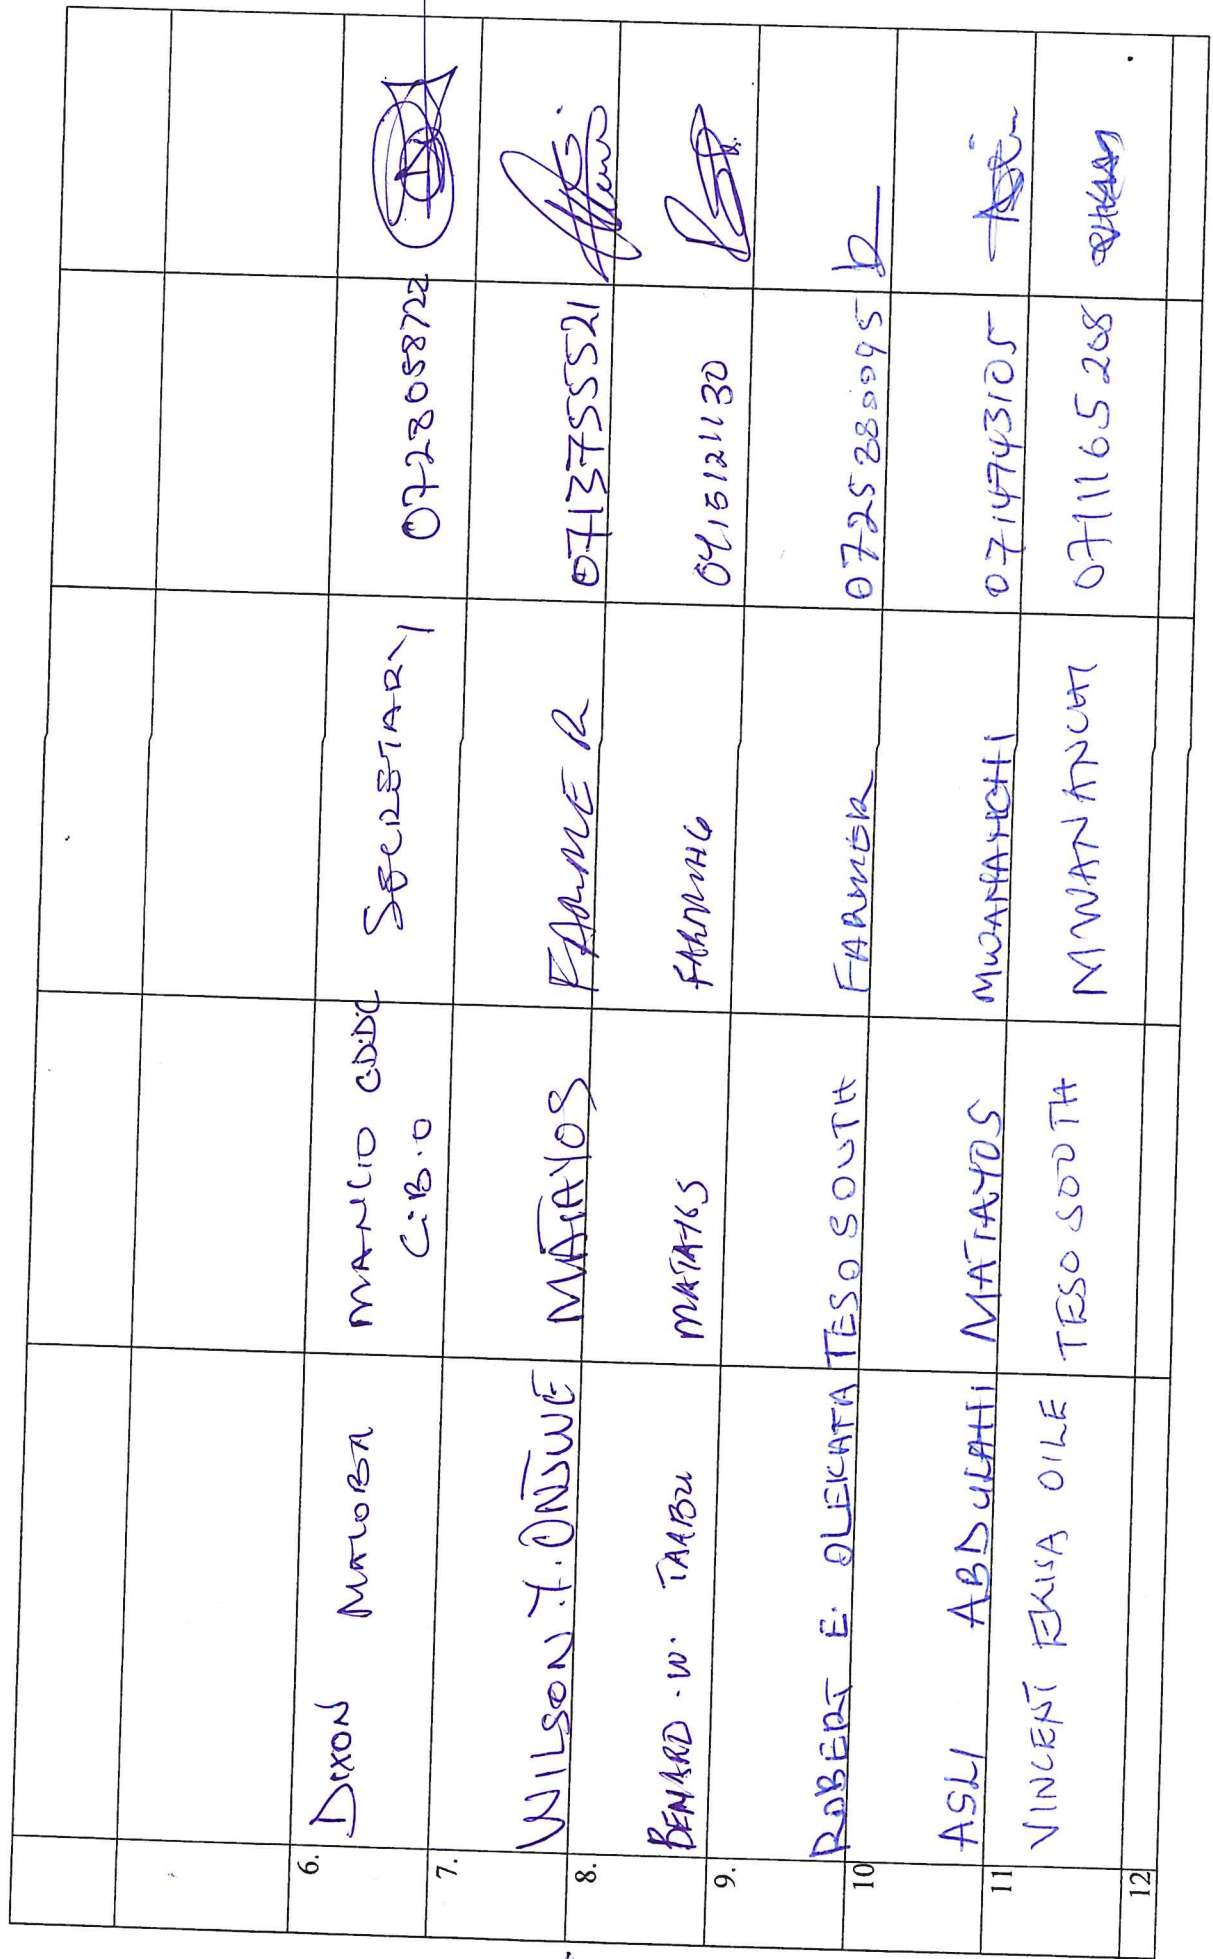 6. DIXON MALOBA MANCIO CDDC SECRETARY 0728058722
C.B.O
7. WILSON Y. ONJUWE MATAYOS FARMER 0713755521
8. BENARD .W. TAABU MATAYOS FARMING
9. ROBERT E. OLEKHATA TESO SOUTH FARMER
10 ASLI ABDULAHI MATAYOS MWANANCHI 0714743105
11 VINCENT EKISA OILE TESO SOUTH MWANANCHI 0711165208
12